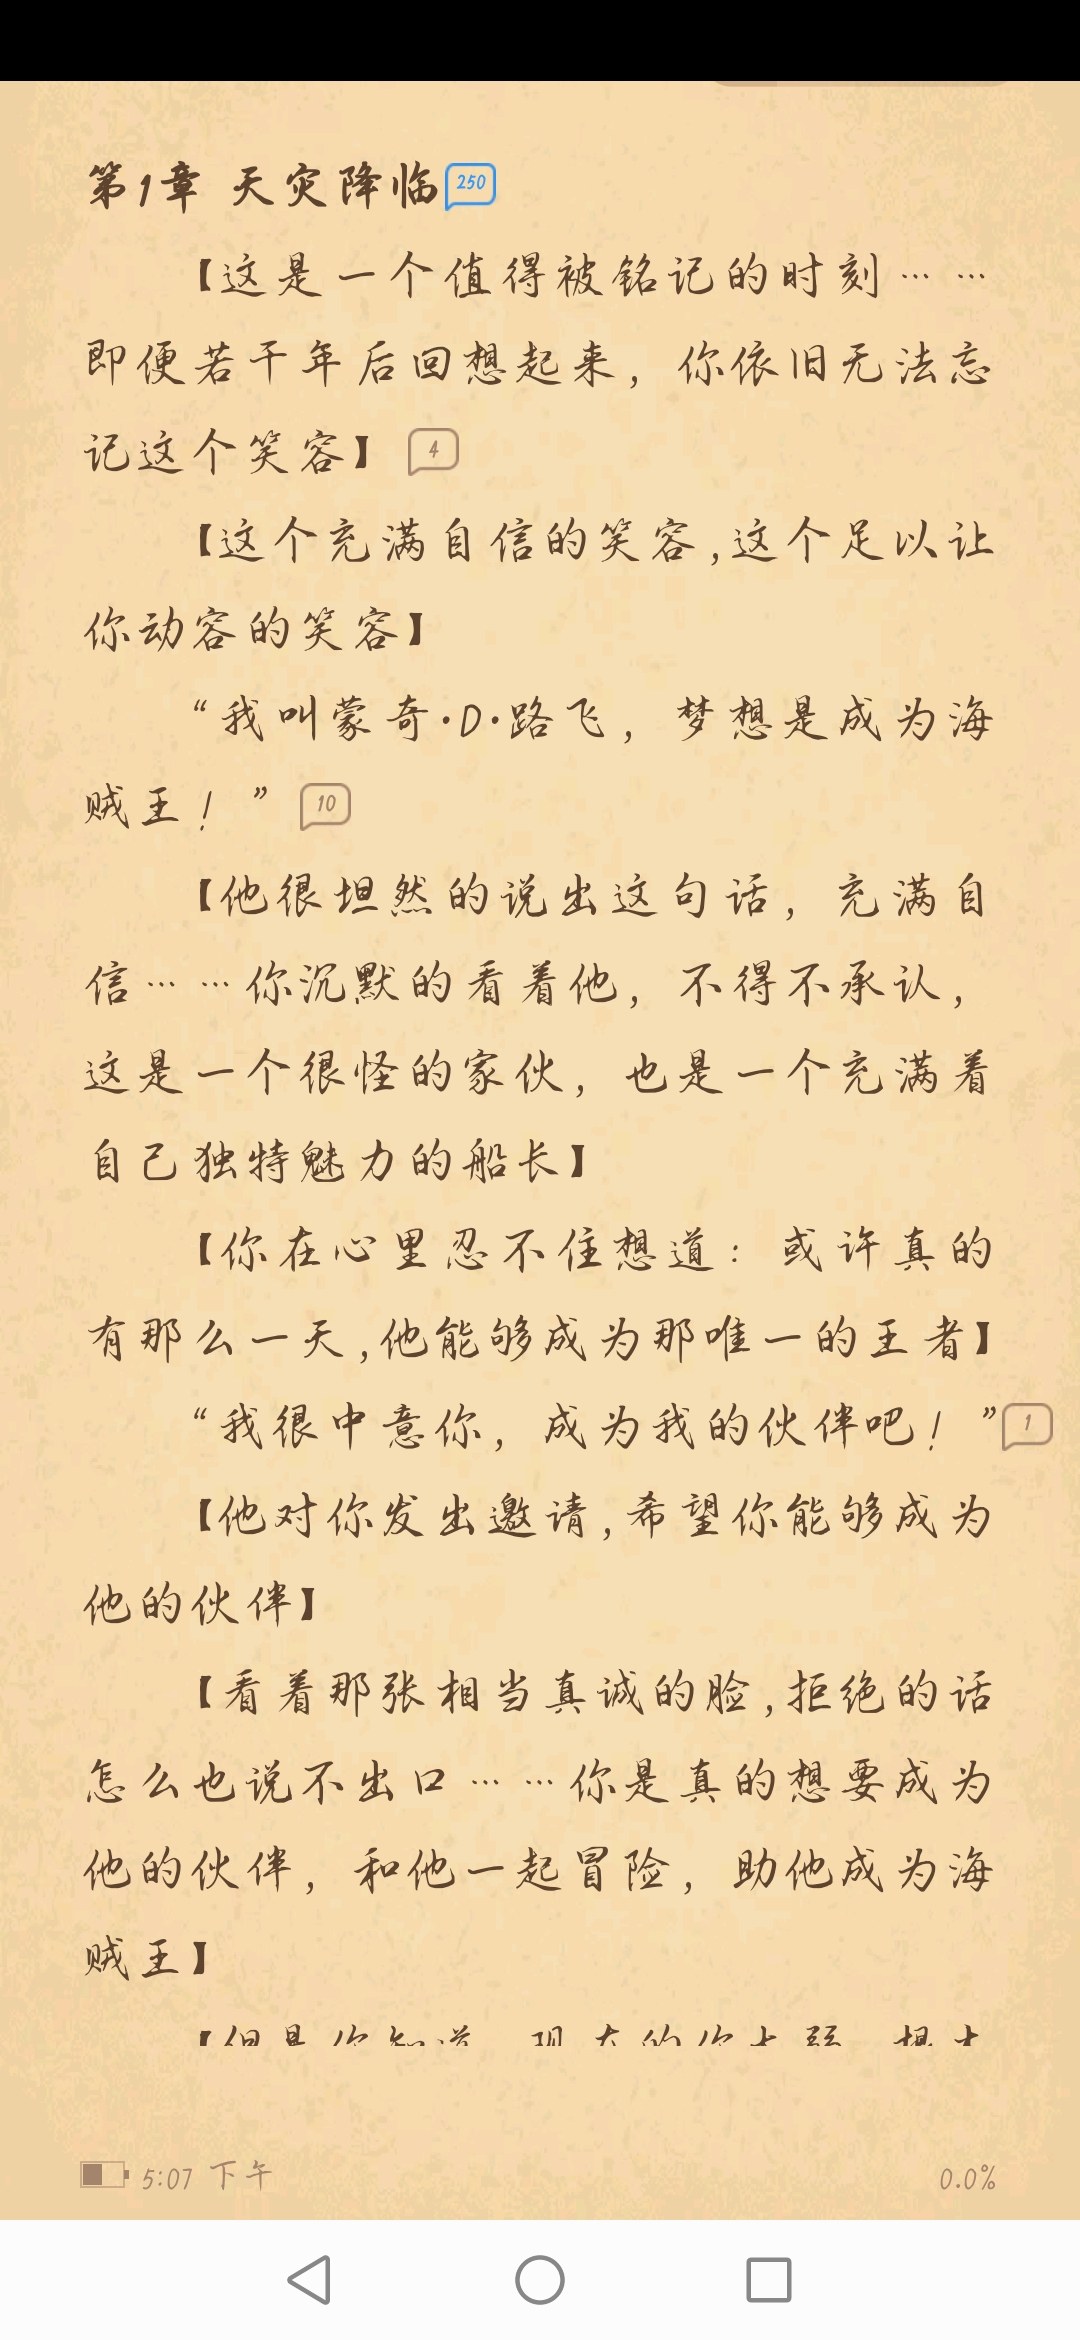 第1章 天灾降临 250
【这是一个值得被铭记的时刻……
即便若干年后回想起来，你依旧无法忘
记这个笑容】 4
【这个充满自信的笑容,这个足以让
你动容的笑容】
“我叫蒙奇·D·路飞，梦想是成为海
贼王！” 10
【他很坦然的说出这句话，充满自
信……你沉默的看着他，不得不承认，
这是一个很怪的家伙，也是一个充满着
自己独特魅力的船长】
【你在心里忍不住想道：或许真的
有那么一天,他能够成为那唯一的王者】
“我很中意你，成为我的伙伴吧！” 1
【他对你发出邀请,希望你能够成为
他的伙伴】
【看着那张相当真诚的脸,拒绝的话
怎么也说不出口……你是真的想要成为
他的伙伴，和他一起冒险，助他成为海
贼王】
【但是你知道，现在的你太弱，根本
5:07 下午
0.0%